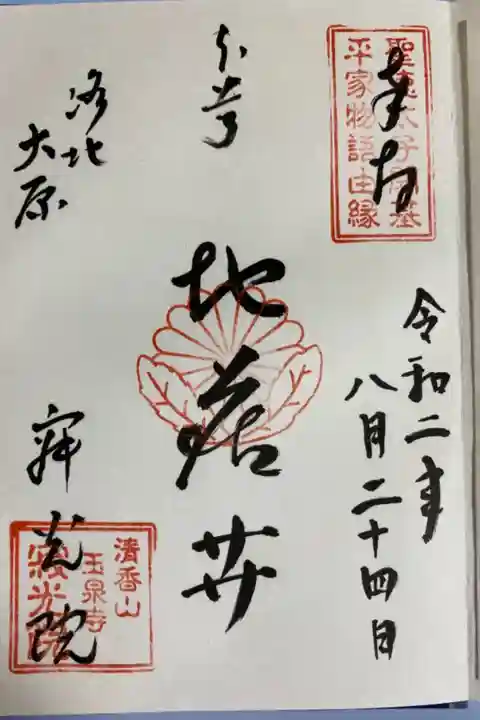 奉拝
聖徳太子開基
平家物語由縁
令和二年
八月二十四日
本尊
地蔵井
洛北
大原
寂光院
清香山
玉泉寺
寂光院